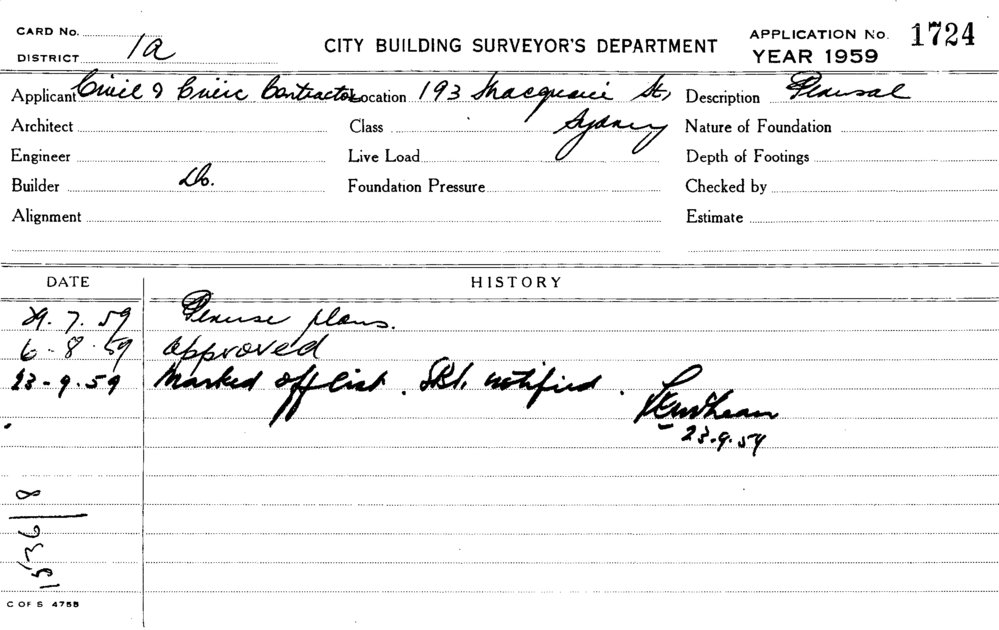 CARD No.
DISTRICT 1a
CITY BUILDING SURVEYOR'S DEPARTMENT
APPLICATION No. 1724
YEAR 1959
Applicant Civil & Civic Contractors Location 193 Macquarie St, Description Perusal
Architect Class Sydney Nature of Foundation
Engineer Live Load Depth of Footings
Builder Do. Foundation Pressure Checked by
Alignment Estimate
DATE HISTORY
29.7.59 Peruse plans.
6-8-59 approved
23-9-59 Marked off list. notified.
23.9.59
1536/8
C OF S 475B